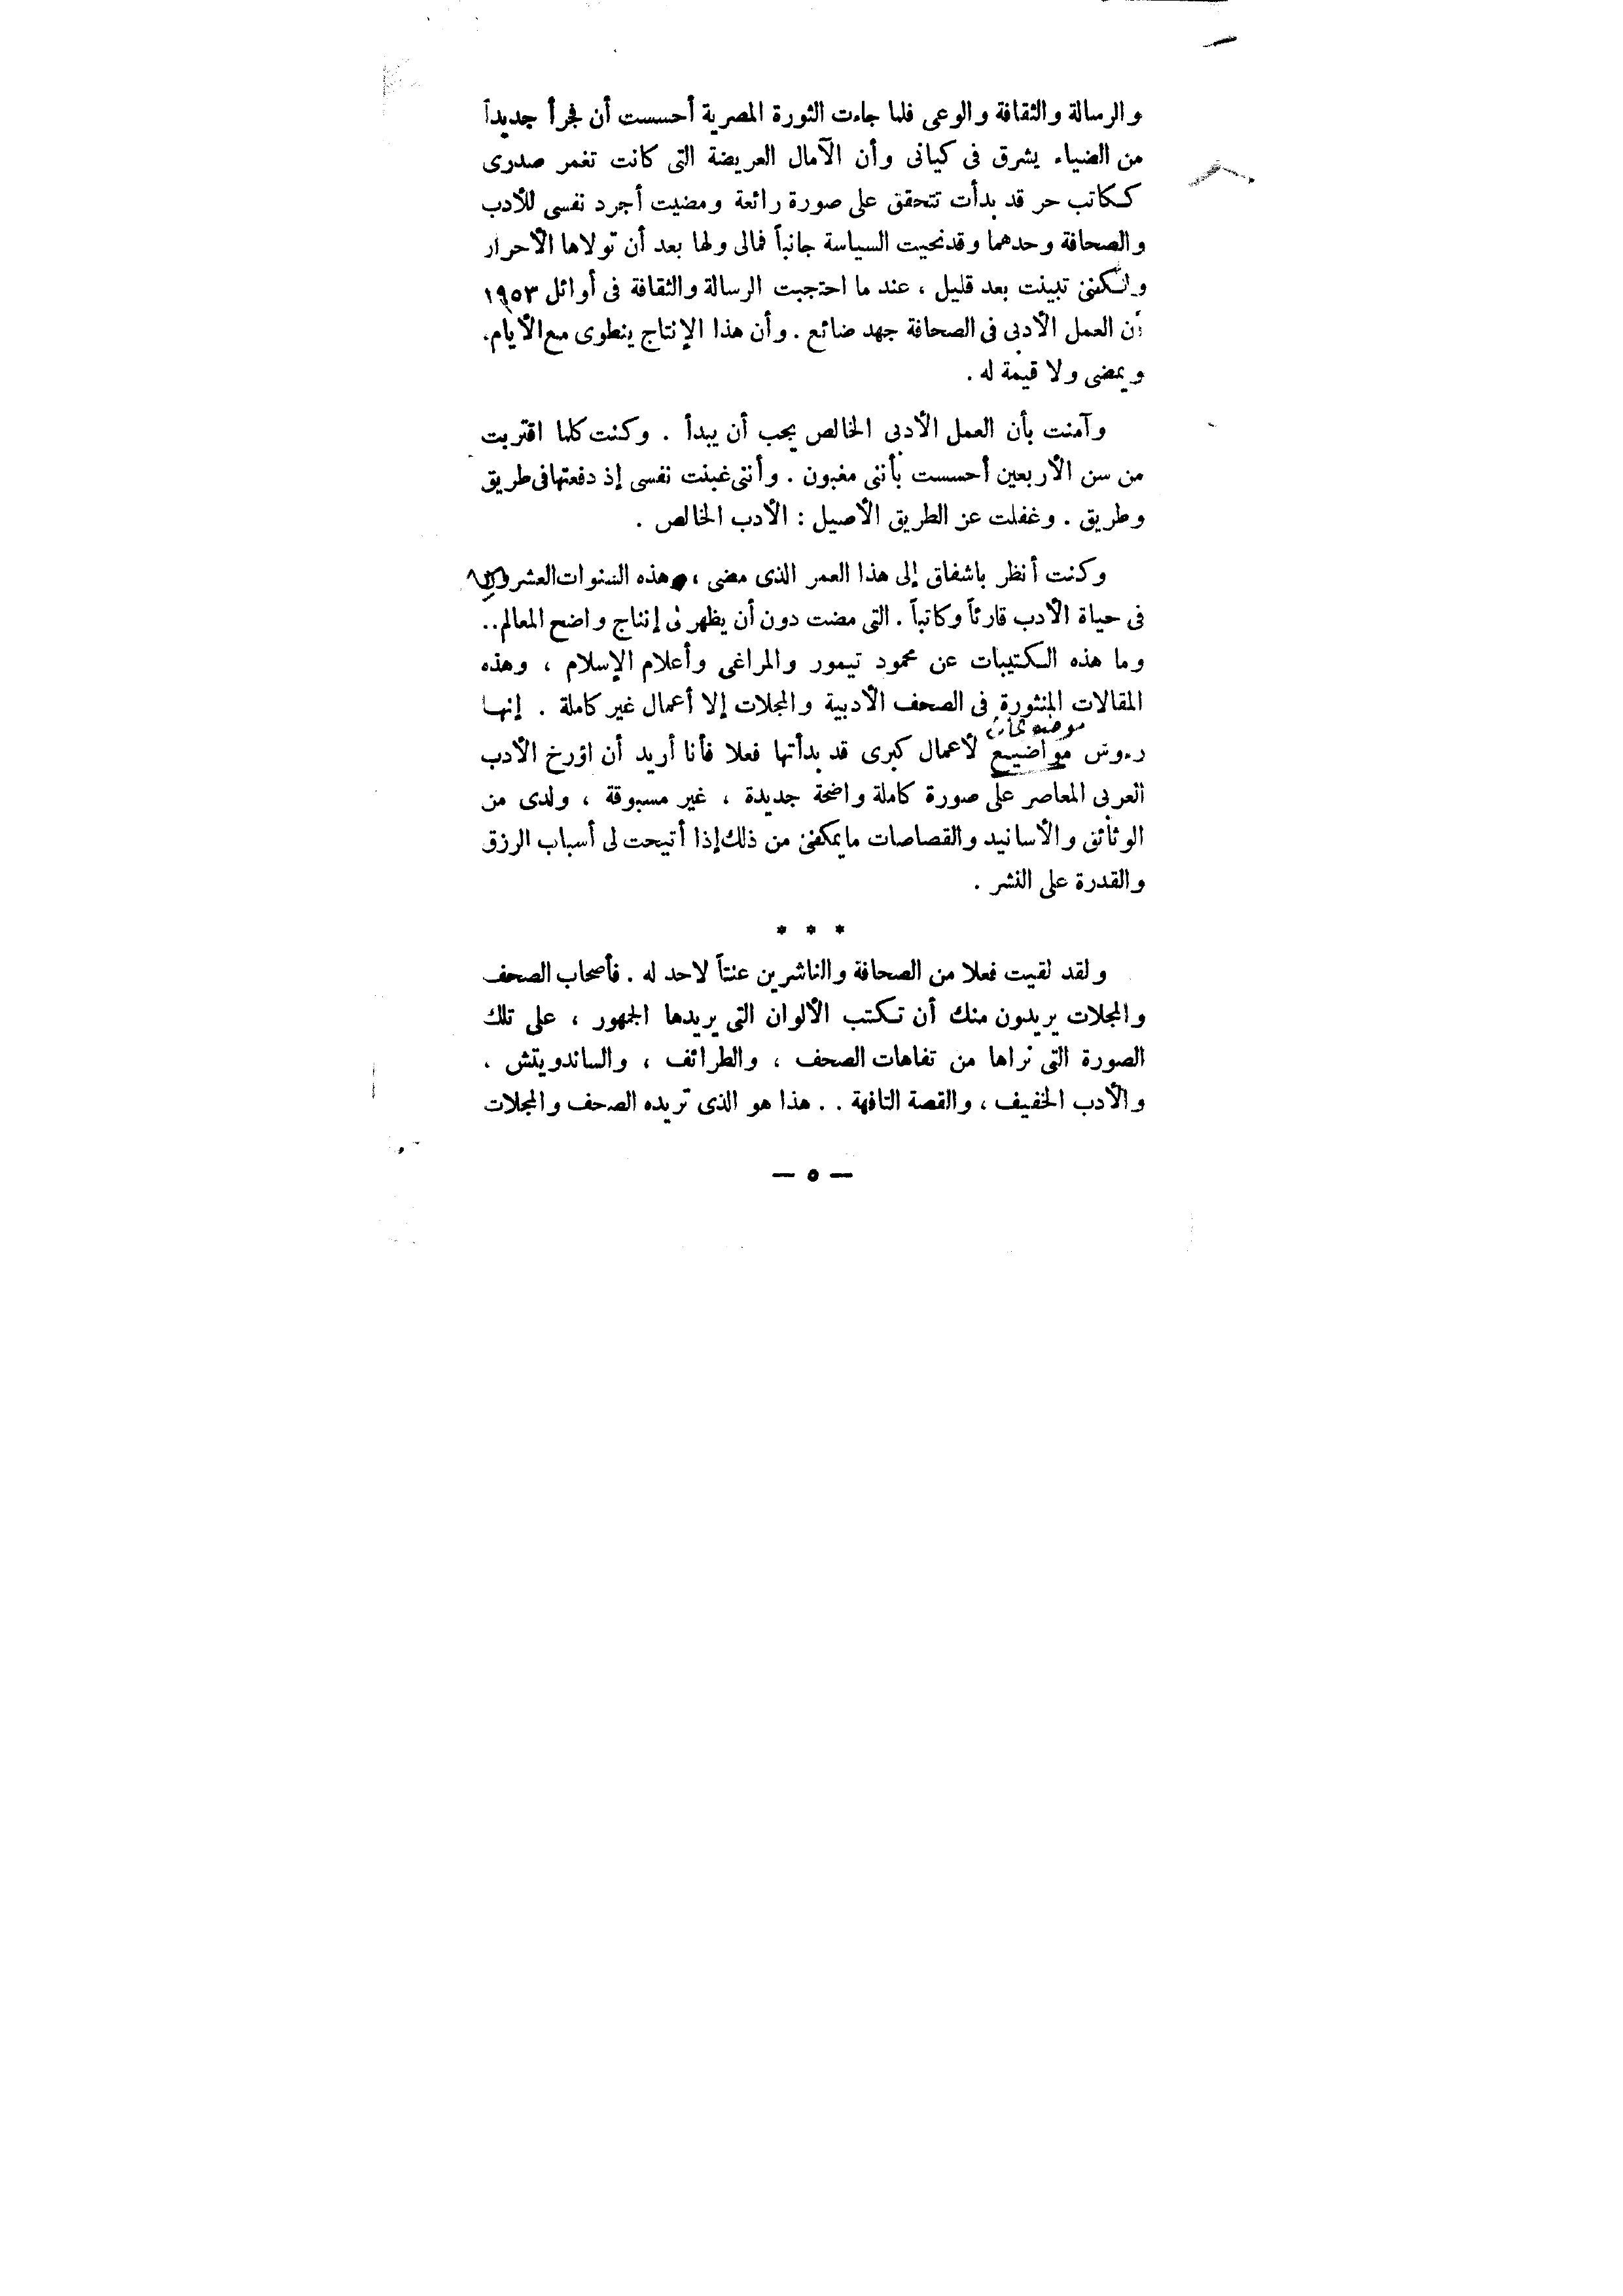 والرسالة والثقافة والوعى فلما جاءت الثورة المصرية أحسست أن فجرأ جديداً
من الضياء يشرق فى كيانى وأن الآمال العريضة التى كانت تغمر صدرى
ككاتب حر قد بدأت تتحقق على صورة رائعة ومضيت أجرد نفسى للأدب
والصحافة وحدهما وقد نحيت السياسة جانباً فمالى ولها بعد أن تولاها الأحرار
ولكننى تبينت بعد قليل ، عند ما احتجبت الرسالة والثقافة فى أوائل ١٩٥٣
أن العمل الأدبى فى الصحافة جهد ضائع . وأن هذا الإنتاج ينطوى مع الأيام.
ويمضى ولا قيمة له .
وآمنت بأن العمل الأدبى الخالص يجب أن يبدأ . وكنت كلما اقتربت
من سن الأربعين أحسست بأننى مغبون . وأننى غبنت نفسى إذ دفعتها فى طريق
وطريق . وغفلت عن الطريق الأصيل : الأدب الخالص .
وكنت أنظر باشفاق إلى هذا العمر الذى مضى ، وهذه السنوات العشرون
فى حياة الأدب قارئاً وكاتباً . التى مضت دون أن يظهر لى إنتاج واضح المعالم..
وما هذه الكتيبات عن محمود تيمور والمراغى وأعلام الإسلام ، وهذه
المقالات المنثورة فى الصحف الأدبية والمجلات إلا أعمال غير كاملة . إنها
رءوس مواضيع لأعمال كبرى قد بدأتها فعلا فأنا أريد أن اؤرخ الأدب
العربى المعاصر على صورة كاملة واضحة جديدة ، غير مسبوقة ، ولدى من
الوثائق والأسانيد والقصاصات ما يمكننى من ذلك إذا أتيحت لى أسباب الرزق
والقدرة على النشر .
* * *
ولقد لقيت فعلا من الصحافة والناشرين عنتاً لاحد له . فأصحاب الصحف
والمجلات يريدون منك أن تكتب الألوان التى يريدها الجمهور ، على تلك
الصورة التى نراها من تفاهات الصحف ، والطرائف ، والساندويتش ،
والأدب الخفيف ، والقصة التافهة . . هذا هو الذى تريده الصحف والمجلات
— ٥ —